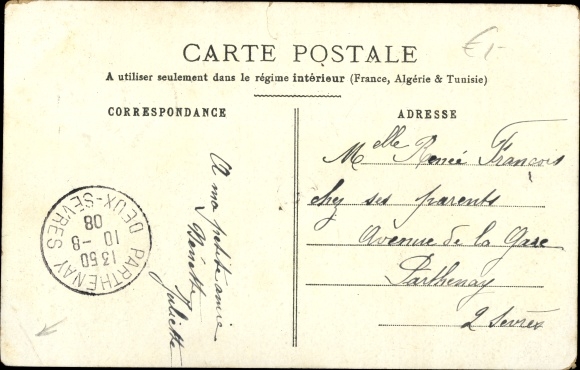 €1-
CARTE POSTALE
A utiliser seulement dans le régime intérieur (France, Algérie & Tunisie)
CORRESPONDANCE
A ma petite amie
Nénette
Juliette
PARTHENAY
13 50
10 - 8
08
DEUX-SÈVRES
ADRESSE
Melle Renée François
chez ses parents
Avenue de la Gare
Parthenay
2 Sevres